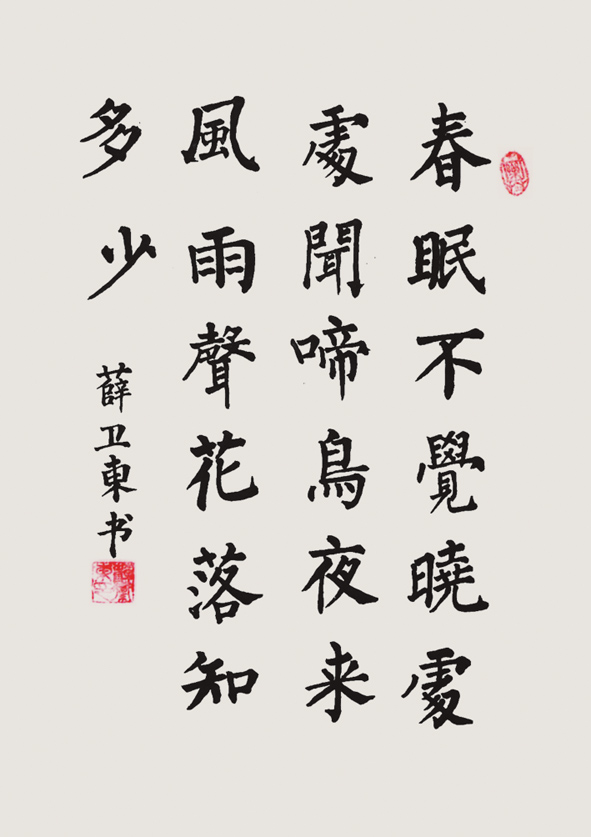 春眠不覺曉處
處聞啼鳥夜来
風雨聲花落知
多少
薛卫東书